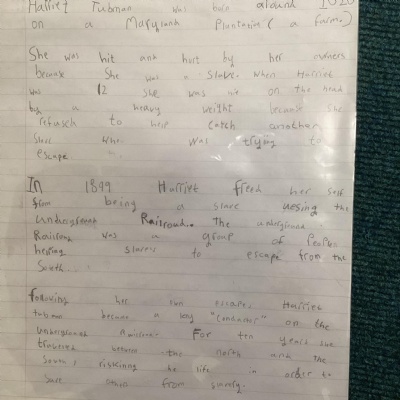 Harriet Tubman was born around 1820
on a Maryland Plantasia ( a farm)
She was hit and hurt by her owners
because She was a Slave. When Harriet
was 12 She was hit on the head
by a heavy weight because she
refusch to help catch another
Slave who was trying to
escape
In 1899 Harriet freed her self
from being a slave uesing the
Undergrount Railroad. The underground
Railroad was a group of People
helping slaves to escape from the
South.
following her own escape, Harriet
tubman became a key "Conductor" on the
Underground Railroad. For ten years she
traveled between the north and the
South, risking he life in order to
save others from slavery.